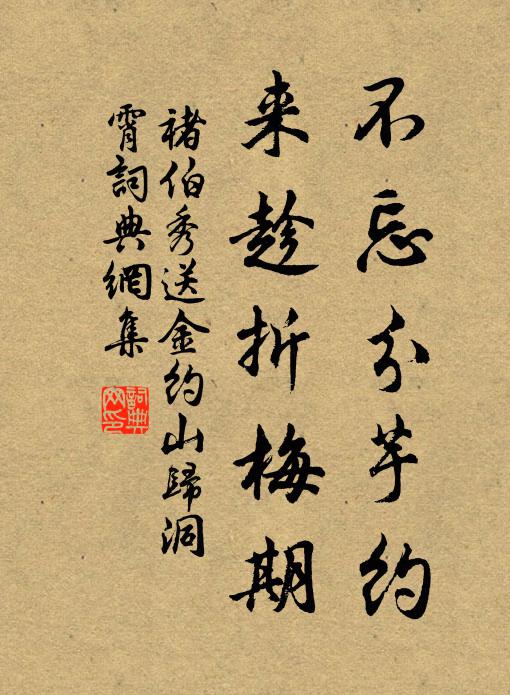 不忘分芋约
来趁折梅期
褚伯秀送金约山歸洞
霄詞典網集
詞典
网印